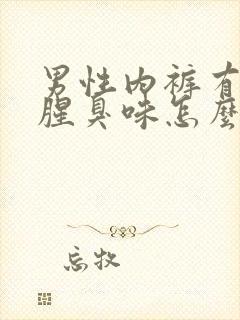 男性内裤有
腥臭味怎麽
忘牧